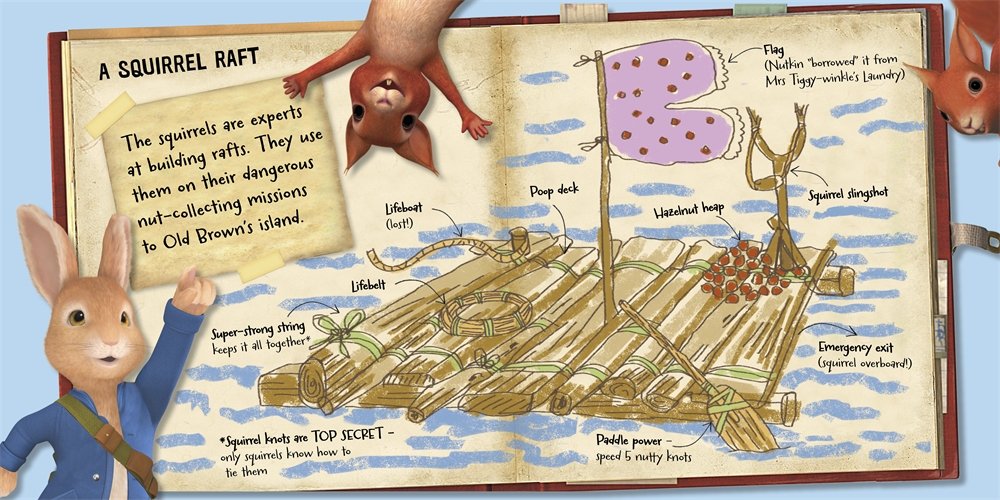 A SQUIRREL RAFT
The squirrels are experts
at building rafts. They use
them on their dangerous
nut-collecting missions
to Old Brown's island.
Lifeboat
(lost!)
Lifebelt
Super-strong string
keeps it all together*
*Squirrel knots are TOP SECRET –
only squirrels know how to
tie them
Poop deck
Flag
(Nutkin "borrowed" it from
Mrs Tiggy-winkle's Laundry)
Squirrel slingshot
Hazelnut heap
Emergency exit
(squirrel overboard!)
Paddle power –
speed 5 nutty knots